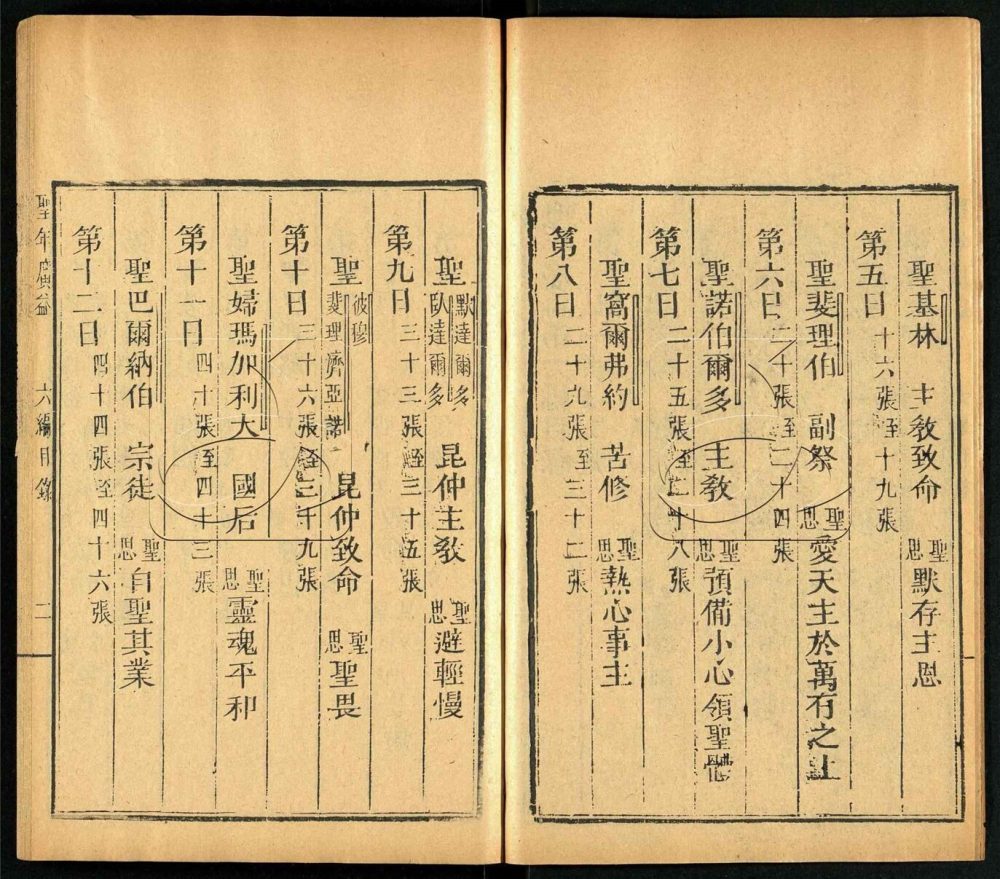 聖基林　主教致命　聖思　默存主恩
第五日　十六張至十九張
聖斐理伯　副祭　聖思　愛天主於萬有之上
第六日　二十張至二十四張
聖諾伯爾多　主教　聖思　預備小心領聖體
第七日　二十五張至二十八張
聖窩爾弗約　苦修　聖思　熱心事主
第八日　二十九張至三十二張
聖　默達爾多　臥達爾多　昆仲主教　聖思　避輕慢
第九日　三十三張至三十五張
聖　彼穆　斐理濟亞諾　昆仲致命　聖思　聖畏
第十日　三十六張至三十九張
聖婦瑪加利大　國后　聖思　靈魂平和
第十一日　四十張至四十三張
聖巴爾納伯　宗徒　聖思　自聖其業
第十二日　四十四張至四十六張
聖年廣益　六編目錄　二